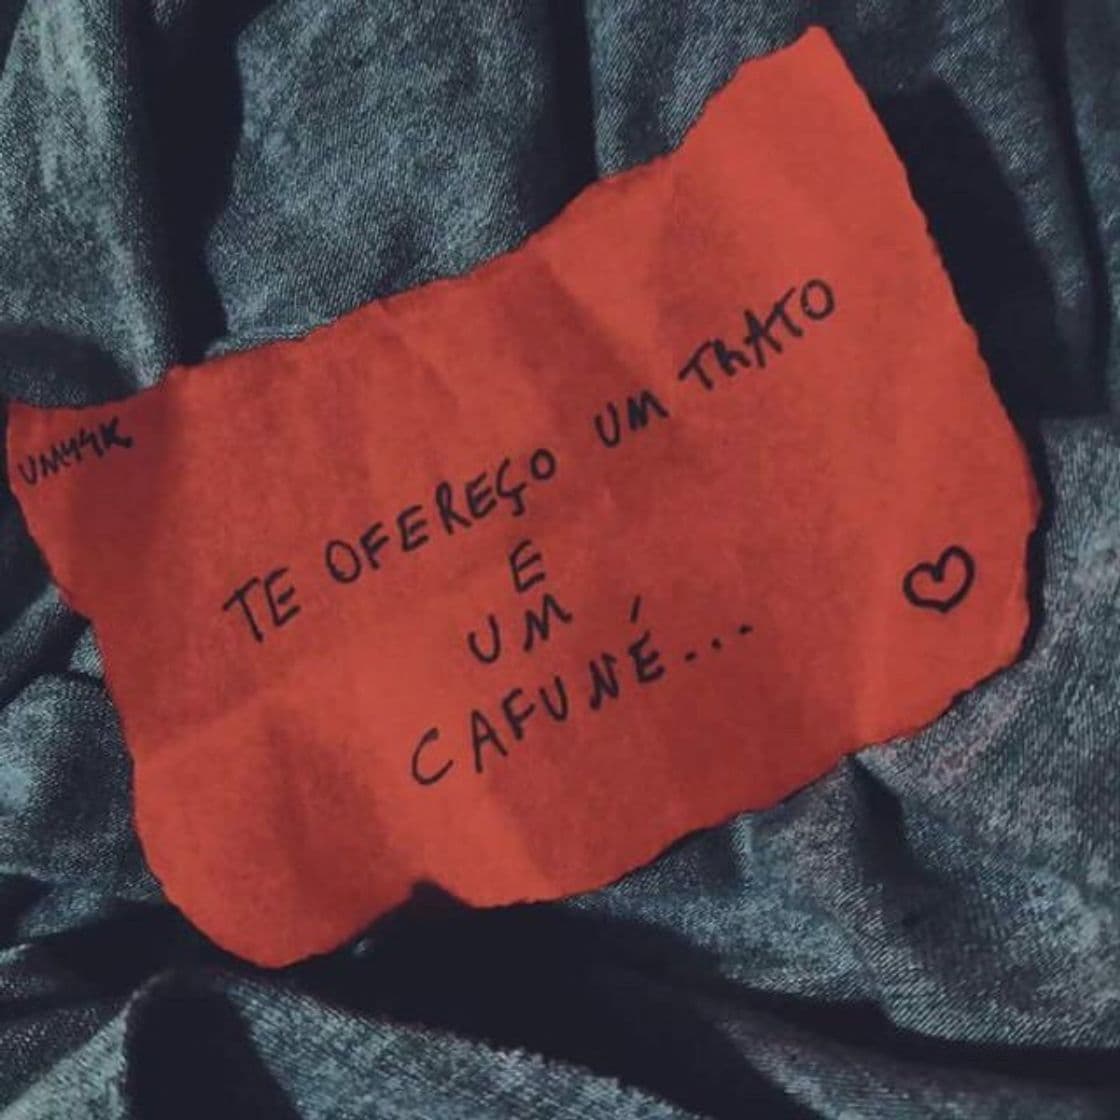 UM44K
TE OFEREÇO UM TRATO
E
UM
CAFUNÉ...